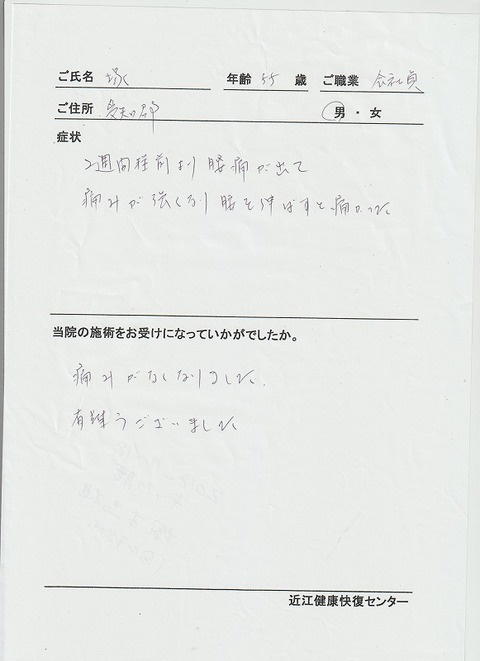 ご氏名 塚 年齢 55 歳 ご職業 会社員
ご住所 愛知郡 男・女
症状
2週間程前より腰痛が出て
痛みが強くなり腰を伸ばすと痛かった
当院の施術をお受けになっていかがでしたか。
痛みがなくなりました。
有難うございました
近江健康快復センター